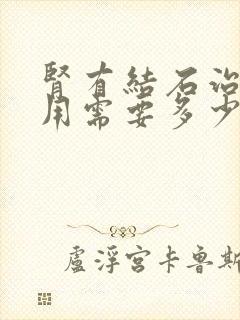 腎有結石治
用需要多少
盧浮宮卡魯斯